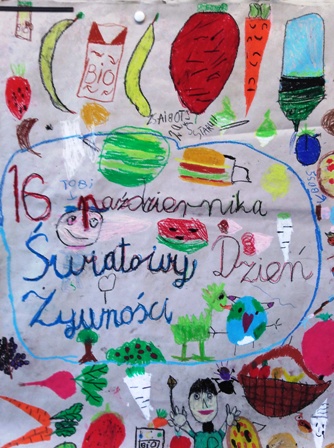 BIO
TOBI
16 października
Światowy Dzień
Żywności
BIO